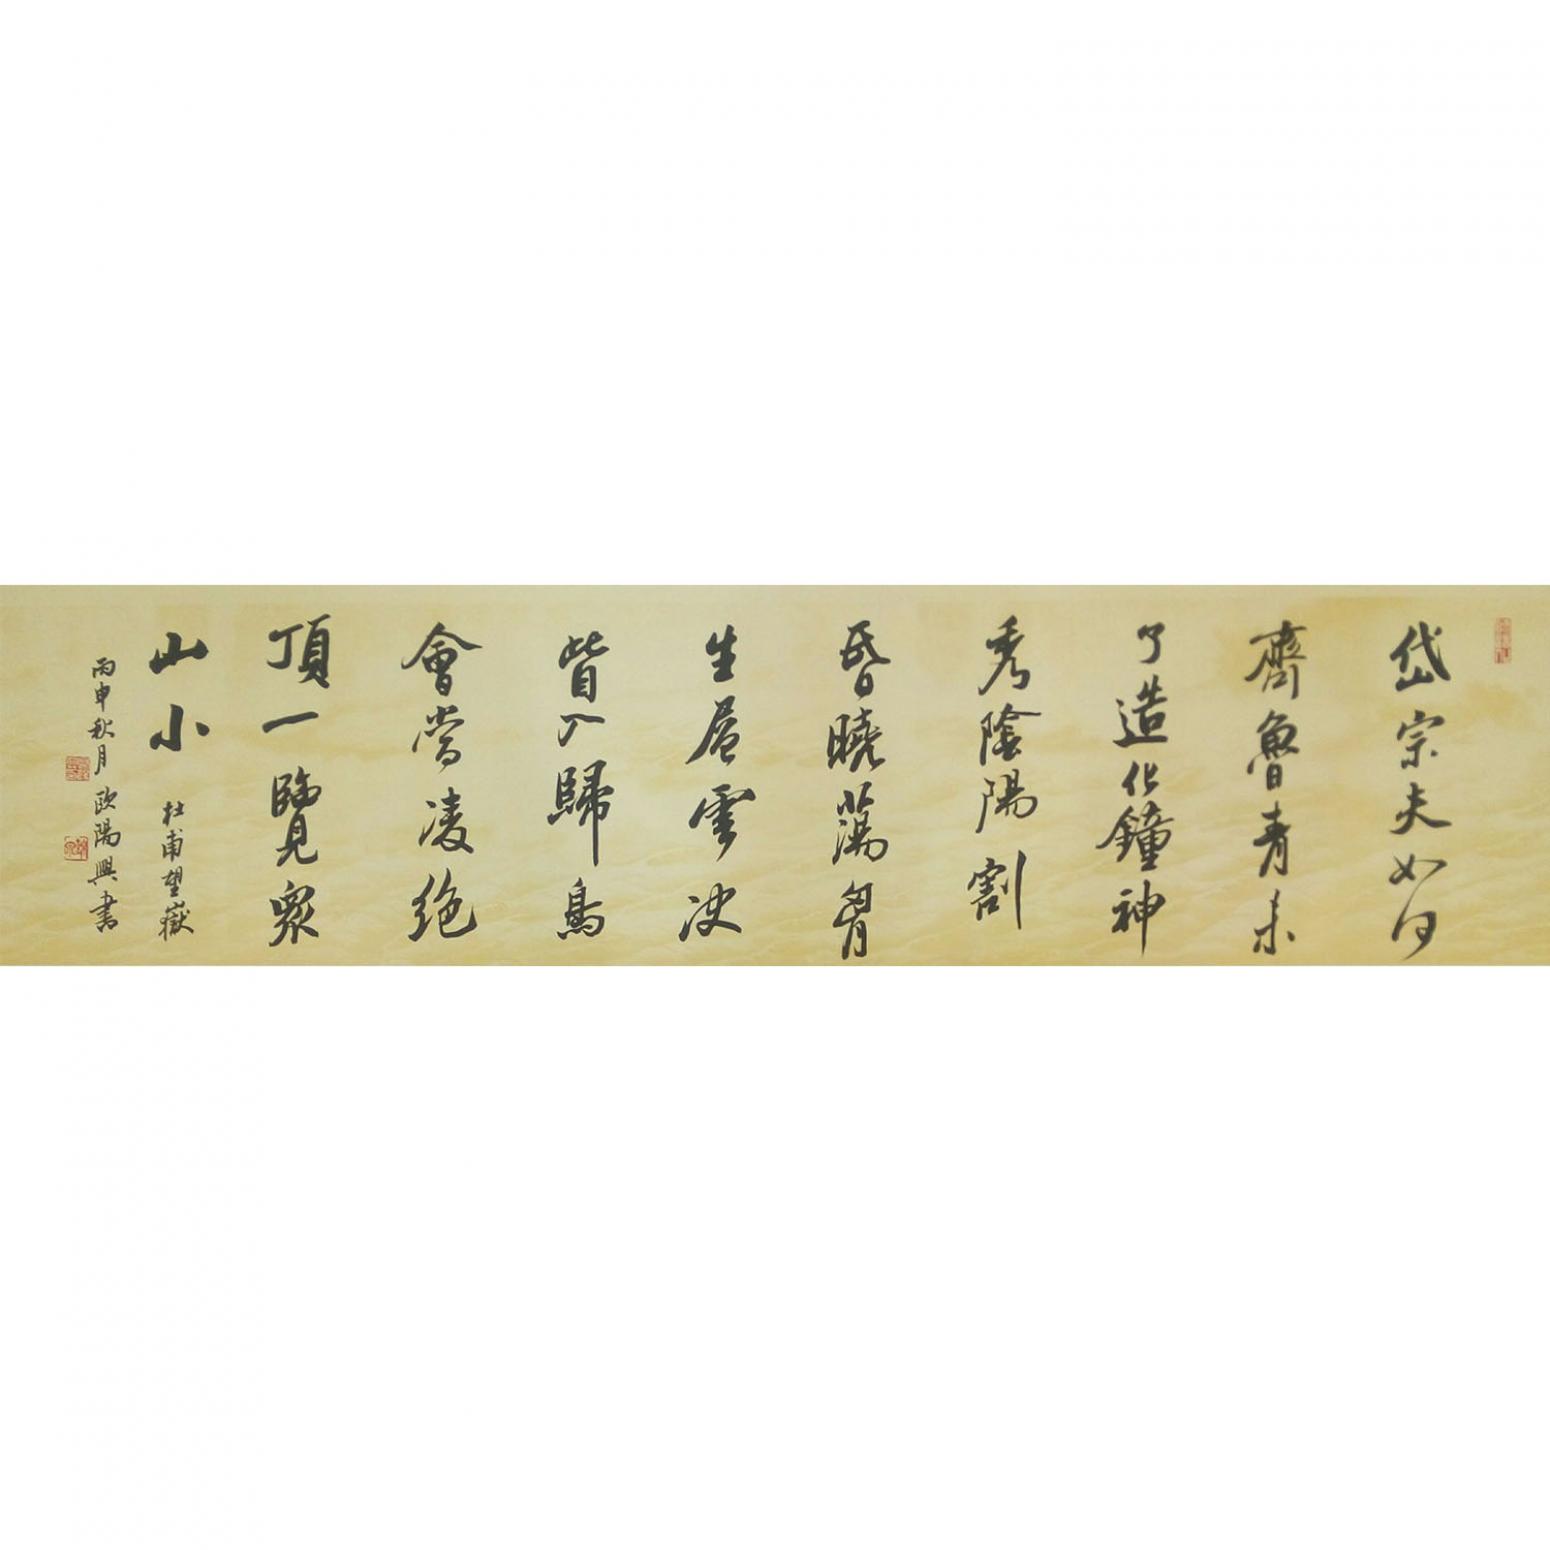 岱宗夫如何
齊魯青未
了造化鐘神
秀陰陽割
昏曉蕩胷
生層雲决
眥入歸鳥
會當凌絶
頂一覽眾
山小 杜甫望嶽
丙申秋月欧陽興書